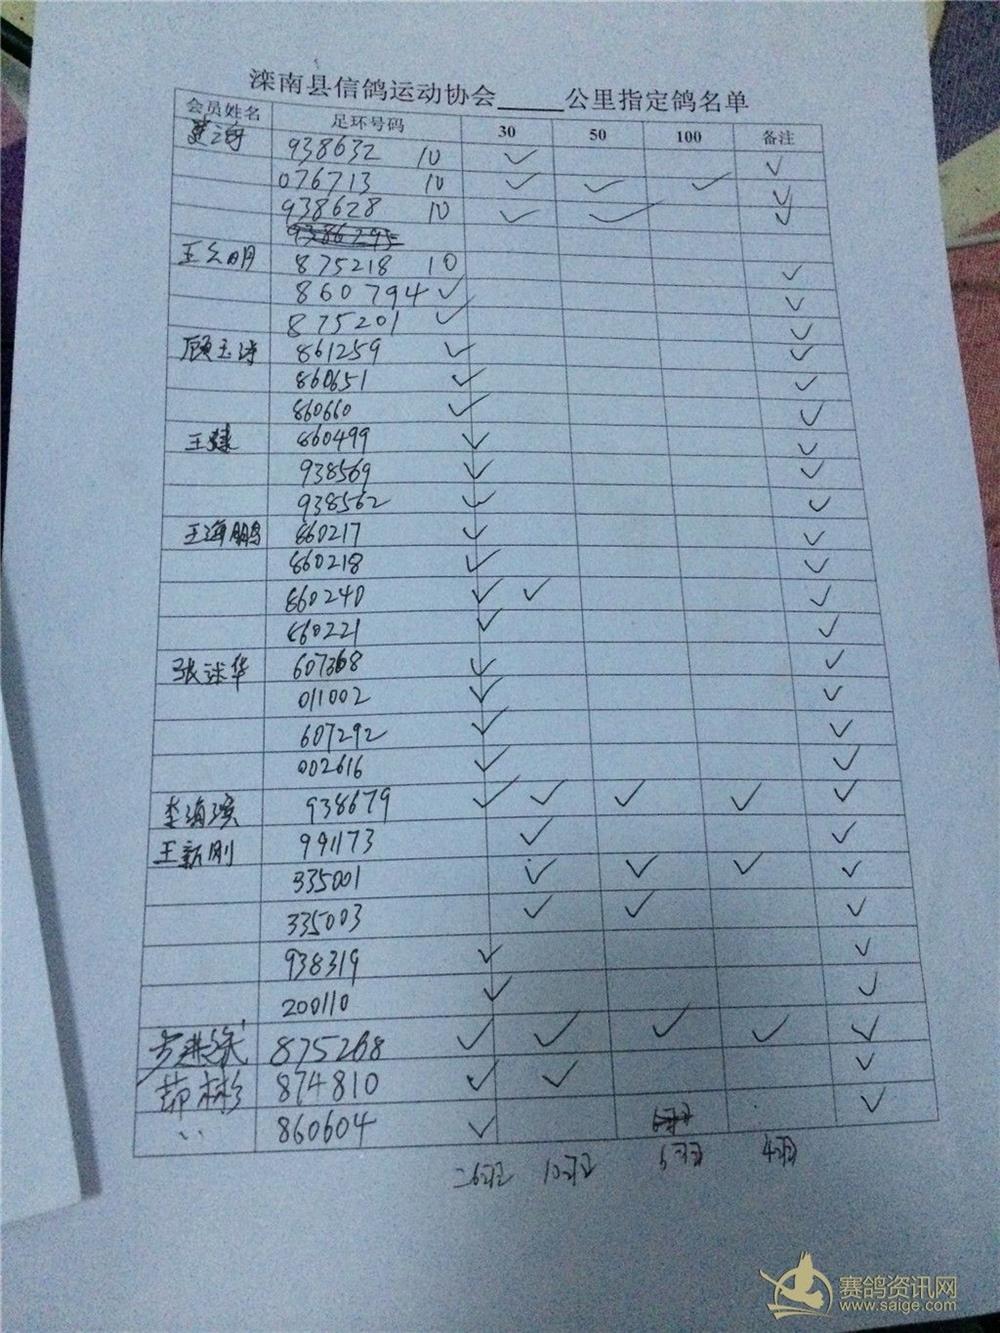 滦南县信鸽运动协会_____公里指定鸽名单
会员姓名 足环号码 30 50 100 备注
938632 10 ✓ ✓
076713 10 ✓ ✓ ✓ ✓
938628 10 ✓ ✓ ✓
875218 10 ✓
860794 ✓ ✓
875201 ✓ ✓
861259 ✓ ✓
860651 ✓ ✓
860660 ✓ ✓
860499 ✓ ✓
938569 ✓ ✓
938562 ✓ ✓
王海鹏 860217 ✓ ✓
860218 ✓ ✓
860240 ✓ ✓ ✓
860221 ✓ ✓
607368 ✓ ✓
011002 ✓ ✓
607292 ✓ ✓
002616 ✓ ✓
李海滨 938679 ✓ ✓ ✓ ✓ ✓
王新刚 991173 ✓ ✓
335001 ✓ ✓ ✓ ✓
335003 ✓ ✓ ✓
938319 ✓ ✓
200110 ✓ ✓
875268 ✓ ✓ ✓ ✓ ✓
874810 ✓ ✓ ✓
860604 ✓ ✓
26羽 10羽 6羽 4羽
赛鸽资讯网
www.saige.com